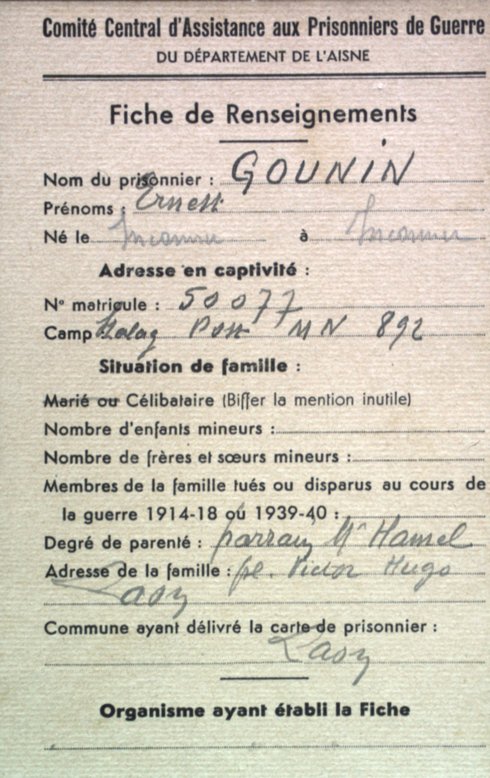 Comité Central d'Assistance aux Prisonniers de Guerre
DU DÉPARTEMENT DE L'AISNE
Fiche de Renseignements
Nom du prisonnier : GOUNIN
Prénoms : Ernest
Né le Inconnu à Inconnu
Adresse en captivité :
N° matricule : 50077
Camp Stalag Post MN 892
Situation de famille :
Marié ou Célibataire (Biffer la mention inutile)
Nombre d'enfants mineurs :
Nombre de frères et sœurs mineurs :
Membres de la famille tués ou disparus au cours de
la guerre 1914-18 ou 1939-40 :
Degré de parenté : parrain Mr Hamel
Adresse de la famille : pl. Victor Hugo
Laon
Commune ayant délivré la carte de prisonnier :
Laon
Organisme ayant établi la Fiche